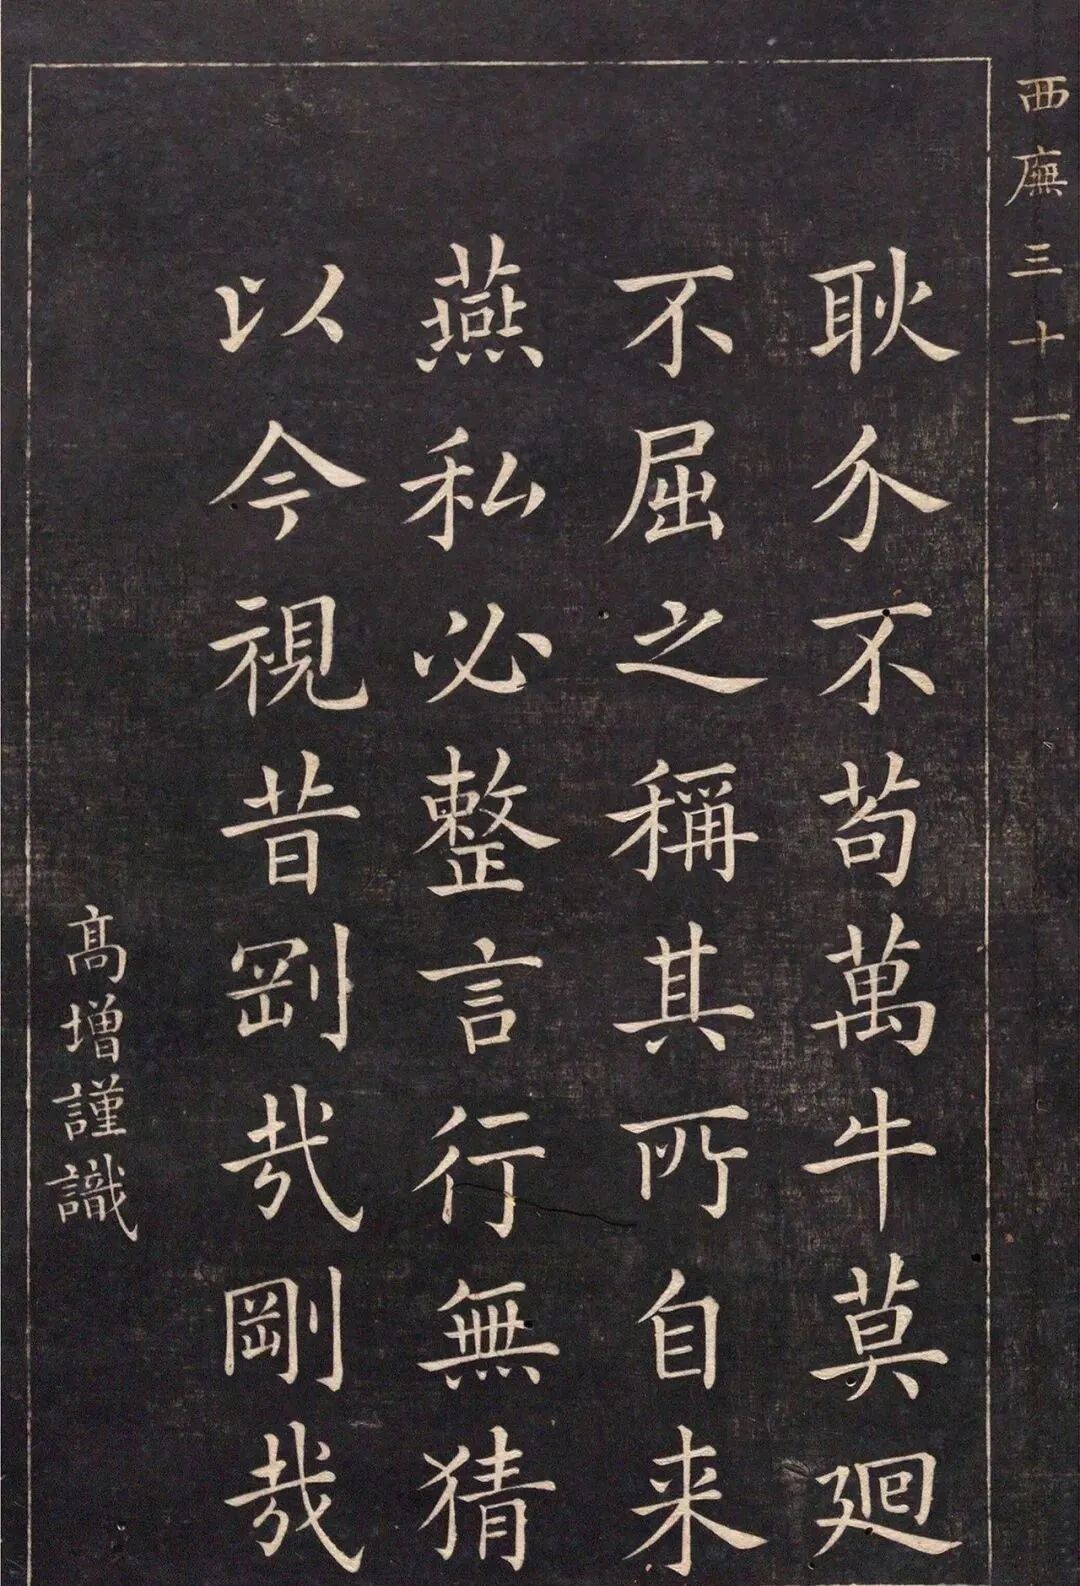 西廡三十一
耿介不苟萬牛莫廻
不屈之稱其所自来
燕私必整言行無猜
以今視昔剛哉剛哉
高增謹識